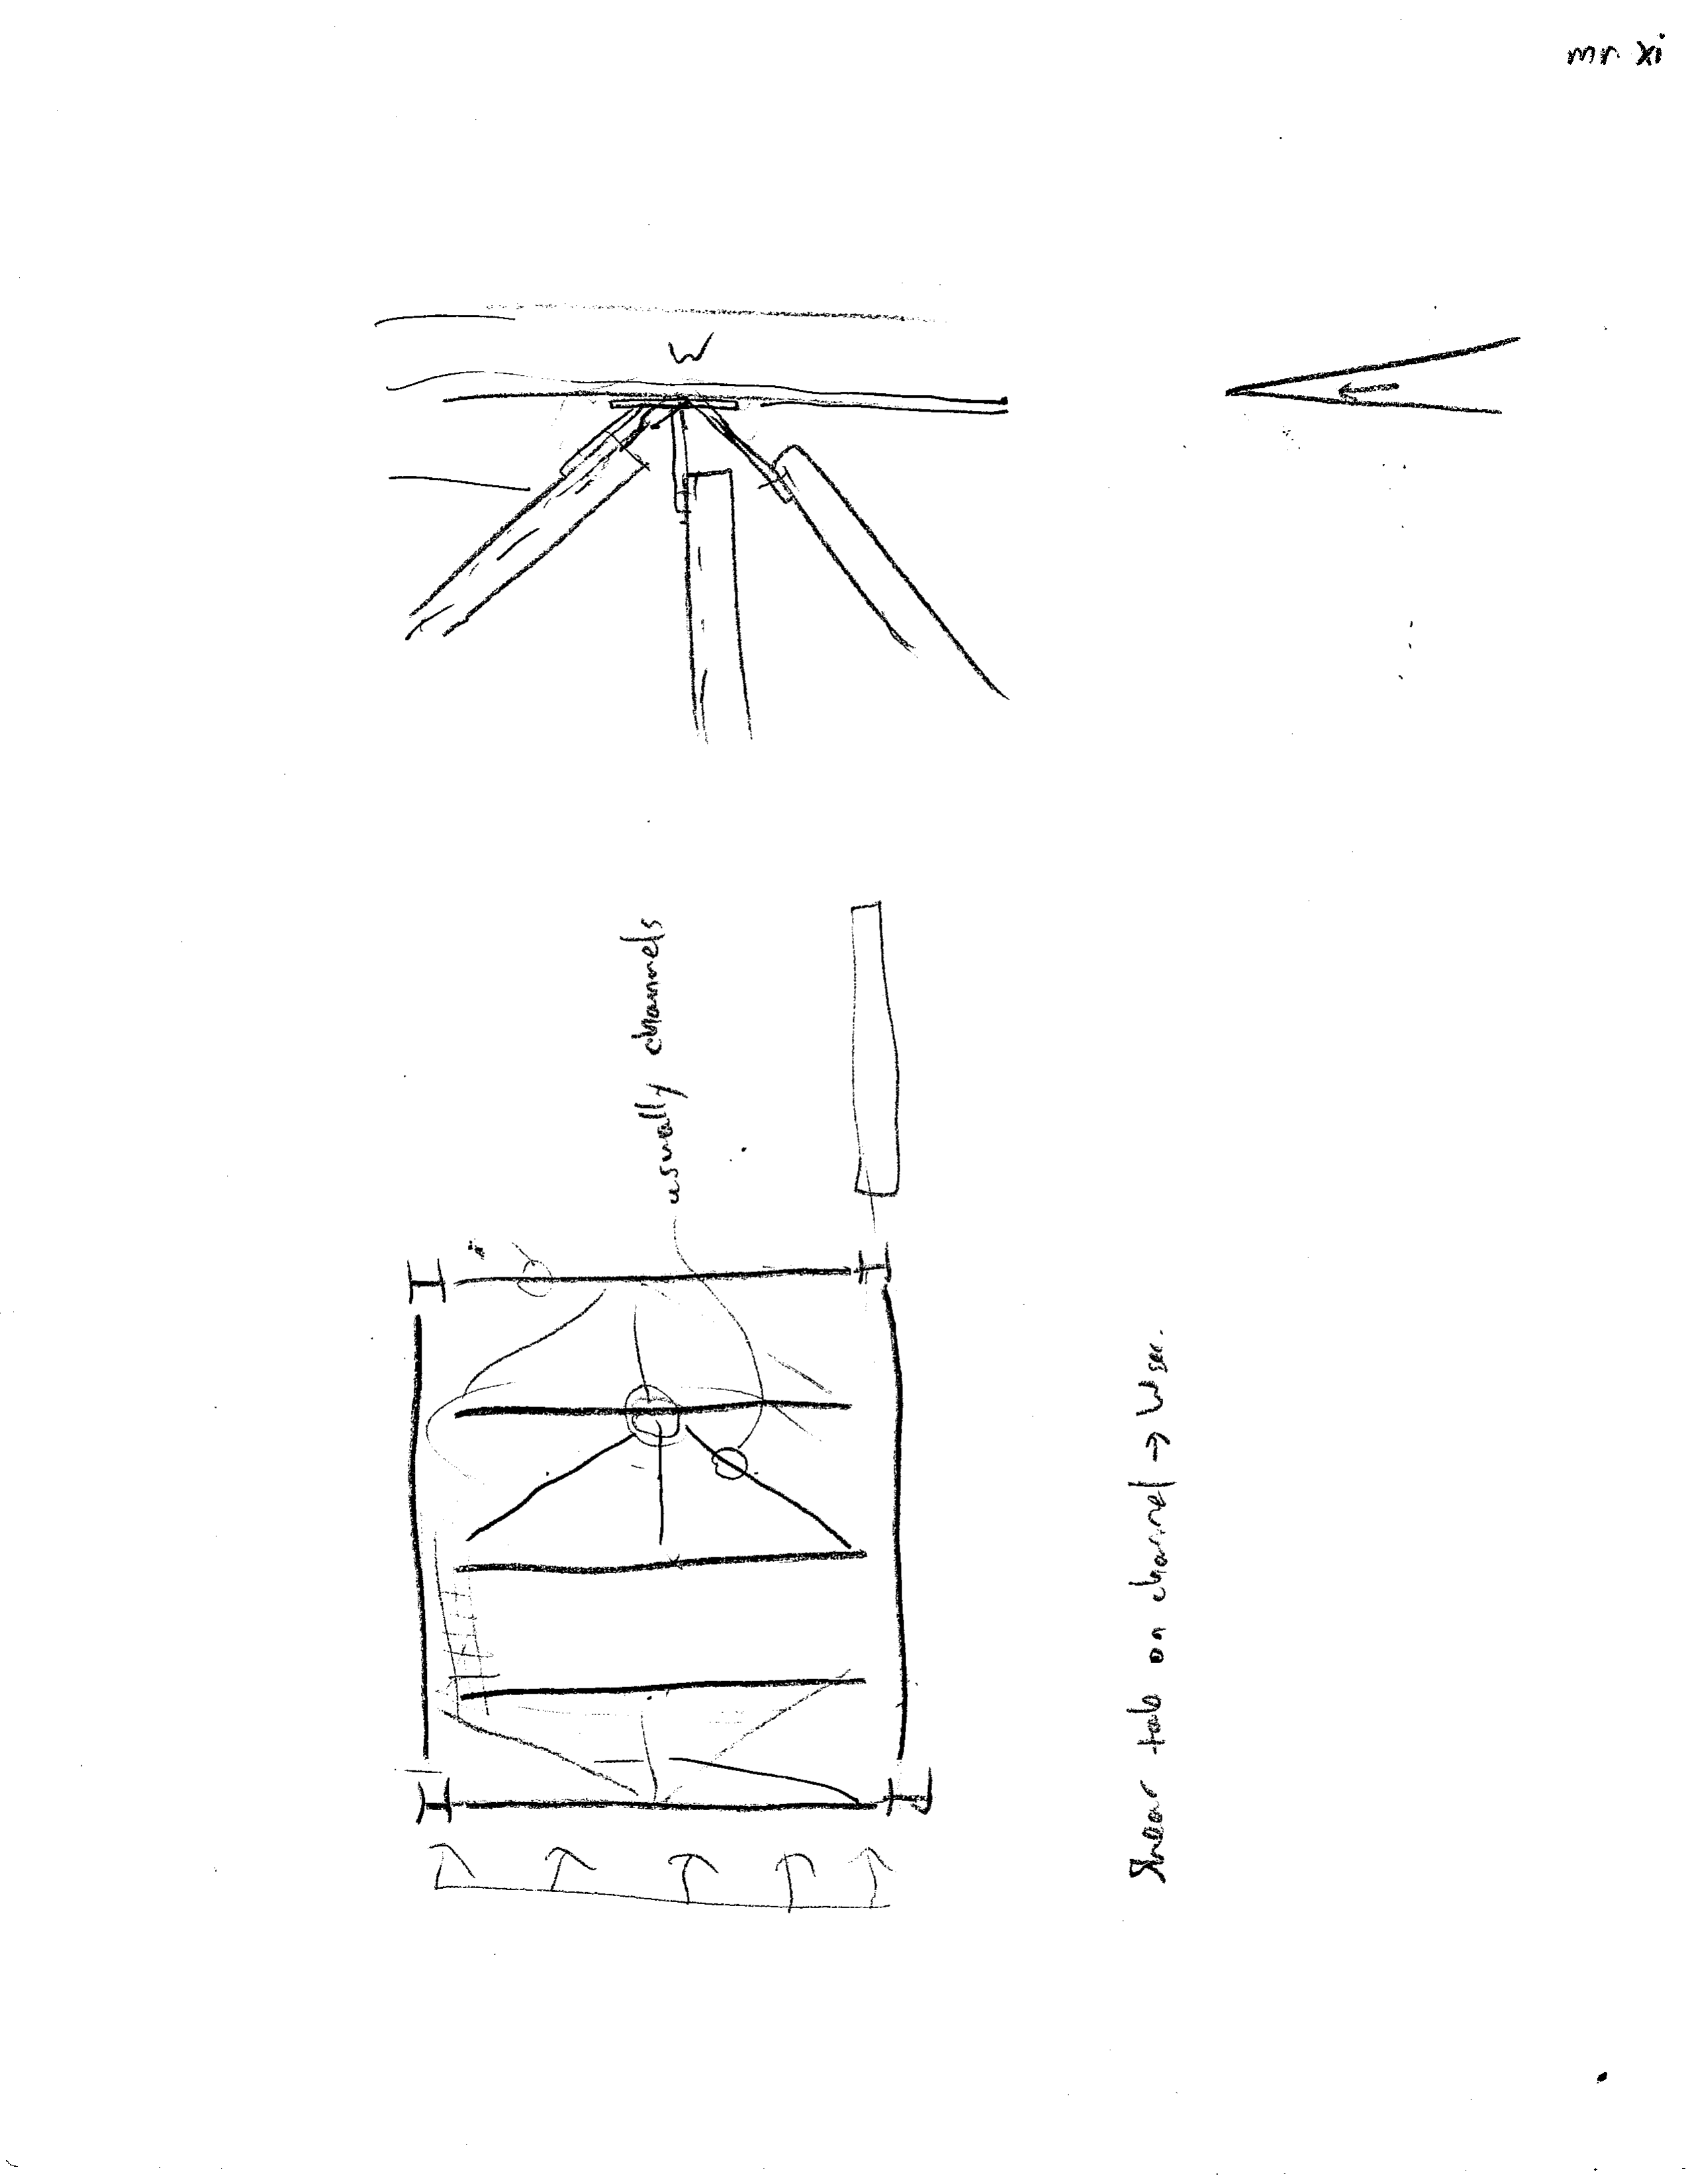 mr. xi
W
usually channels
Shear tab on channel → W sec.